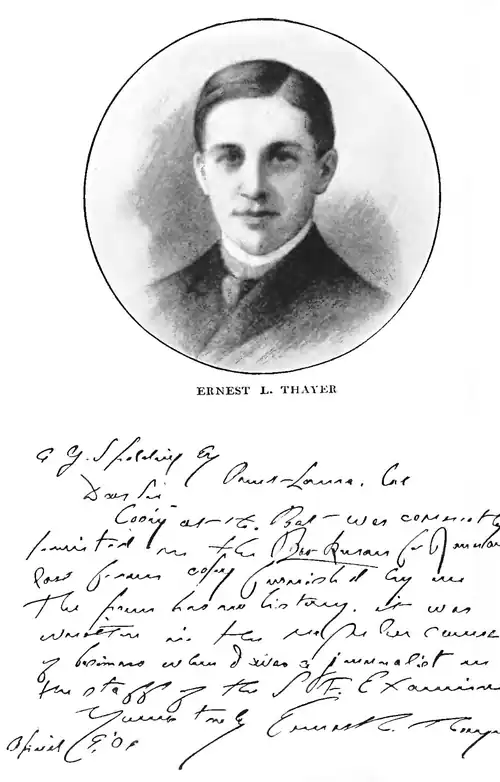 ERNEST L. THAYER
A G. Spalding Esq
Point Loma, Cal
Dear Sir
"Casey at the Bat" was correctly
printed in the Bookman for
last from copy furnished by me
The poem has no history. It was
written in the regular course
of business when I was a journalist on
the staff of the S.F. Examiner
Yours truly
Ernest L. Thayer